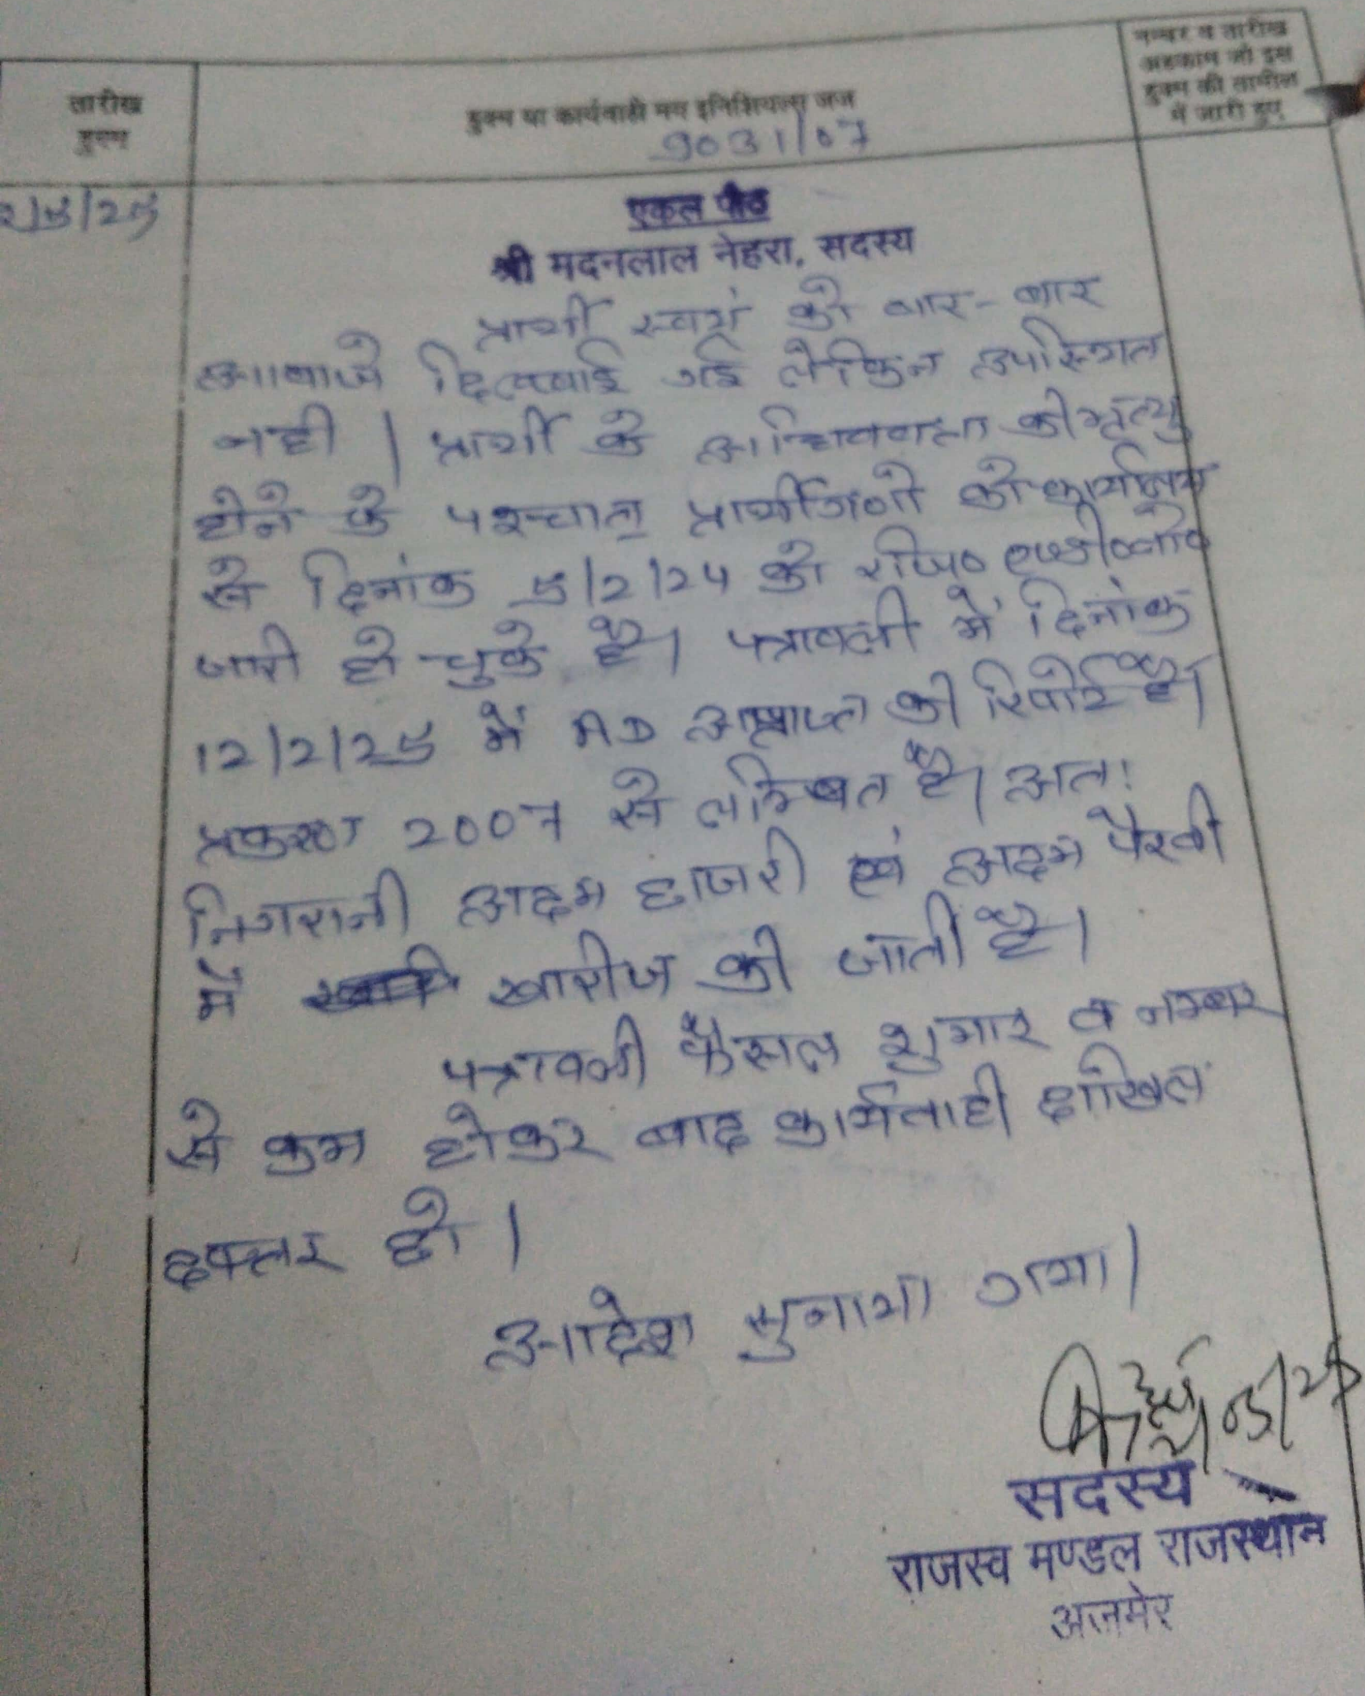 तारीख
हुक्म
हुक्म या कार्यवाही मय इनिशियल्स जज
नम्बर व तारीख
अहकाम जो इस
हुक्म की तामील
में जारी हुए
9031/07
2/5/25
एकल पीठ
श्री मदनलाल नेहरा, सदस्य
प्रार्थी स्वयं को बार-बार
आवाजे दिलवाई गई लेकिन उपस्थित
नही। प्रार्थी के अधिवक्ता की मृत्यु
होने के पश्चात प्रार्थीगणो को कार्यालय
से दिनांक 5/2/24 को रजि०
जारी हो चुके है। पत्रावली में दिनांक
12/2/25 में AD अप्राप्त की रिपोर्ट है।
प्रकरण 2007 से लम्बित है। अतः
निगरानी अदम हाजरी एवं अदम पैरवी
में खारीज की जाती है।
पत्रावली फैसल शुमार व नम्बर
से कम होकर बाद कार्यवाही दाखिल
दफ्तर हो।
आदेश सुनाया गया।
सदस्य
राजस्व मण्डल राजस्थान
अजमेर